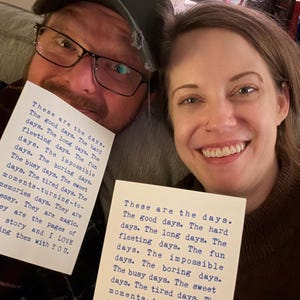 These are the days.
The good days. The hard
days. The long days. The
fleeting days. The fun
days. The impossible
days. The boring days.
The busy days. The sweet
days. The tired days. The
moments-turning-to-
memories days. They are
messy. They are magic.
They are the pages of
story and I LOVE
ing them with YOU.
These are the days.
The good days. The hard
days. The long days. The
fleeting days. The fun
days. The impossible
days. The boring days.
The busy days. The sweet
days. The tired days.